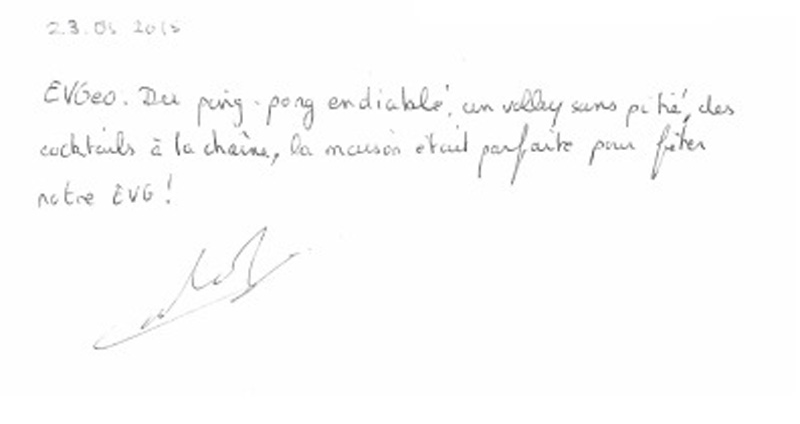 23.05 2015
EVGeo. Du ping-pong endiablé, un volley sans pitié, des
cocktails à la chaîne, la maison était parfaite pour fêter
notre EVG!